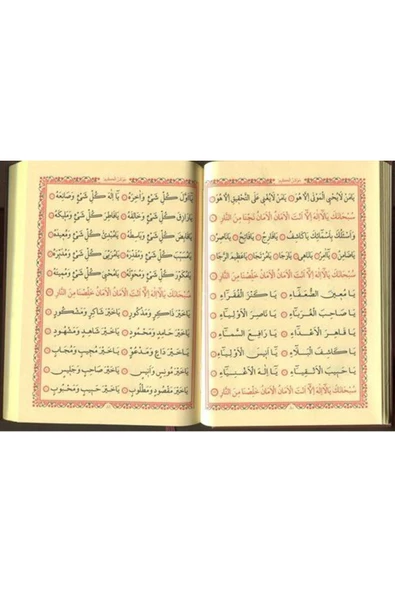 يَامَنْ لَا يُحْيِي الْمَوْتٰى اِلَّا هُوَ يَامَنْ لَا
سُبْحَانَكَ يَا لَا اِلٰهَ اِلَّا اَنْتَ الْاَمَانُ الْاَمَانُ نَجِّنَا مِنَ النَّارِ
وَاَسْئَلُكَ بِاَسْمَائِكَ يَا كَاشِفُ يَا فَارِجُ يَا فَاتِحُ
يَا مُعِينَ الضُّعَفَاءِ يَا كَنْزَ الْفُقَرَاءِ
يَا صَاحِبَ الْغُرَبَاءِ يَا نَاصِرَ الْاَوْلِيَاءِ
يَا قَاهِرَ الْاَعْدَاءِ يَا رَافِعَ السَّمَاءِ
يَا كَاشِفَ الْبَلَاءِ يَا اَنِيسَ الْاَوْلِيَاءِ
يَا حَبِيبَ الْاَتْقِيَاءِ يَا اِلٰهَ الْاَغْنِيَاءِ
سُبْحَانَكَ يَا لَا اِلٰهَ اِلَّا اَنْتَ الْاَمَانُ الْاَمَانُ خَلِّصْنَا مِنَ النَّارِ
يَا اَوَّلَ كُلِّ شَيْءٍ وَاٰخِرَهُ يَا اِلٰهَ كُلِّ شَيْءٍ وَصَانِعَهُ
يَا رَازِقَ كُلِّ شَيْءٍ وَخَالِقَهُ يَا فَاطِرَ كُلِّ شَيْءٍ وَمَلِيكَهُ
يَا قَابِضَ كُلِّ شَيْءٍ وَبَاسِطَهُ يَا مُبْدِئَ كُلِّ شَيْءٍ وَمُعِيدَهُ
يَا مُسَبِّبَ كُلِّ شَيْءٍ وَمُقَدِّرَهُ يَا مُرَبِّيَ كُلِّ شَيْءٍ وَمُدَبِّرَهُ
يَا مُكَوِّرَ كُلِّ شَيْءٍ وَمُحَوِّلَهُ يَا مُحْيِيَ كُلِّ شَيْءٍ وَمُمِيتَهُ
سُبْحَانَكَ يَا لَا اِلٰهَ اِلَّا اَنْتَ الْاَمَانُ الْاَمَانُ خَلِّصْنَا مِنَ النَّارِ
يَا خَيْرَ ذَاكِرٍ وَمَذْكُورٍ يَا خَيْرَ شَاكِرٍ وَمَشْكُورٍ
يَا خَيْرَ حَامِدٍ وَمَحْمُودٍ يَا خَيْرَ شَاهِدٍ وَمَشْهُودٍ
يَا خَيْرَ دَاعٍ وَمَدْعُوٍّ يَا خَيْرَ مُجِيبٍ وَمُجَابٍ
يَا خَيْرَ مُونِسٍ وَاَنِيسٍ يَا خَيْرَ صَاحِبٍ وَجَلِيسٍ
يَا خَيْرَ مَقْصُودٍ وَمَطْلُوبٍ يَا خَيْرَ حَبِيبٍ وَمَحْبُوبٍ